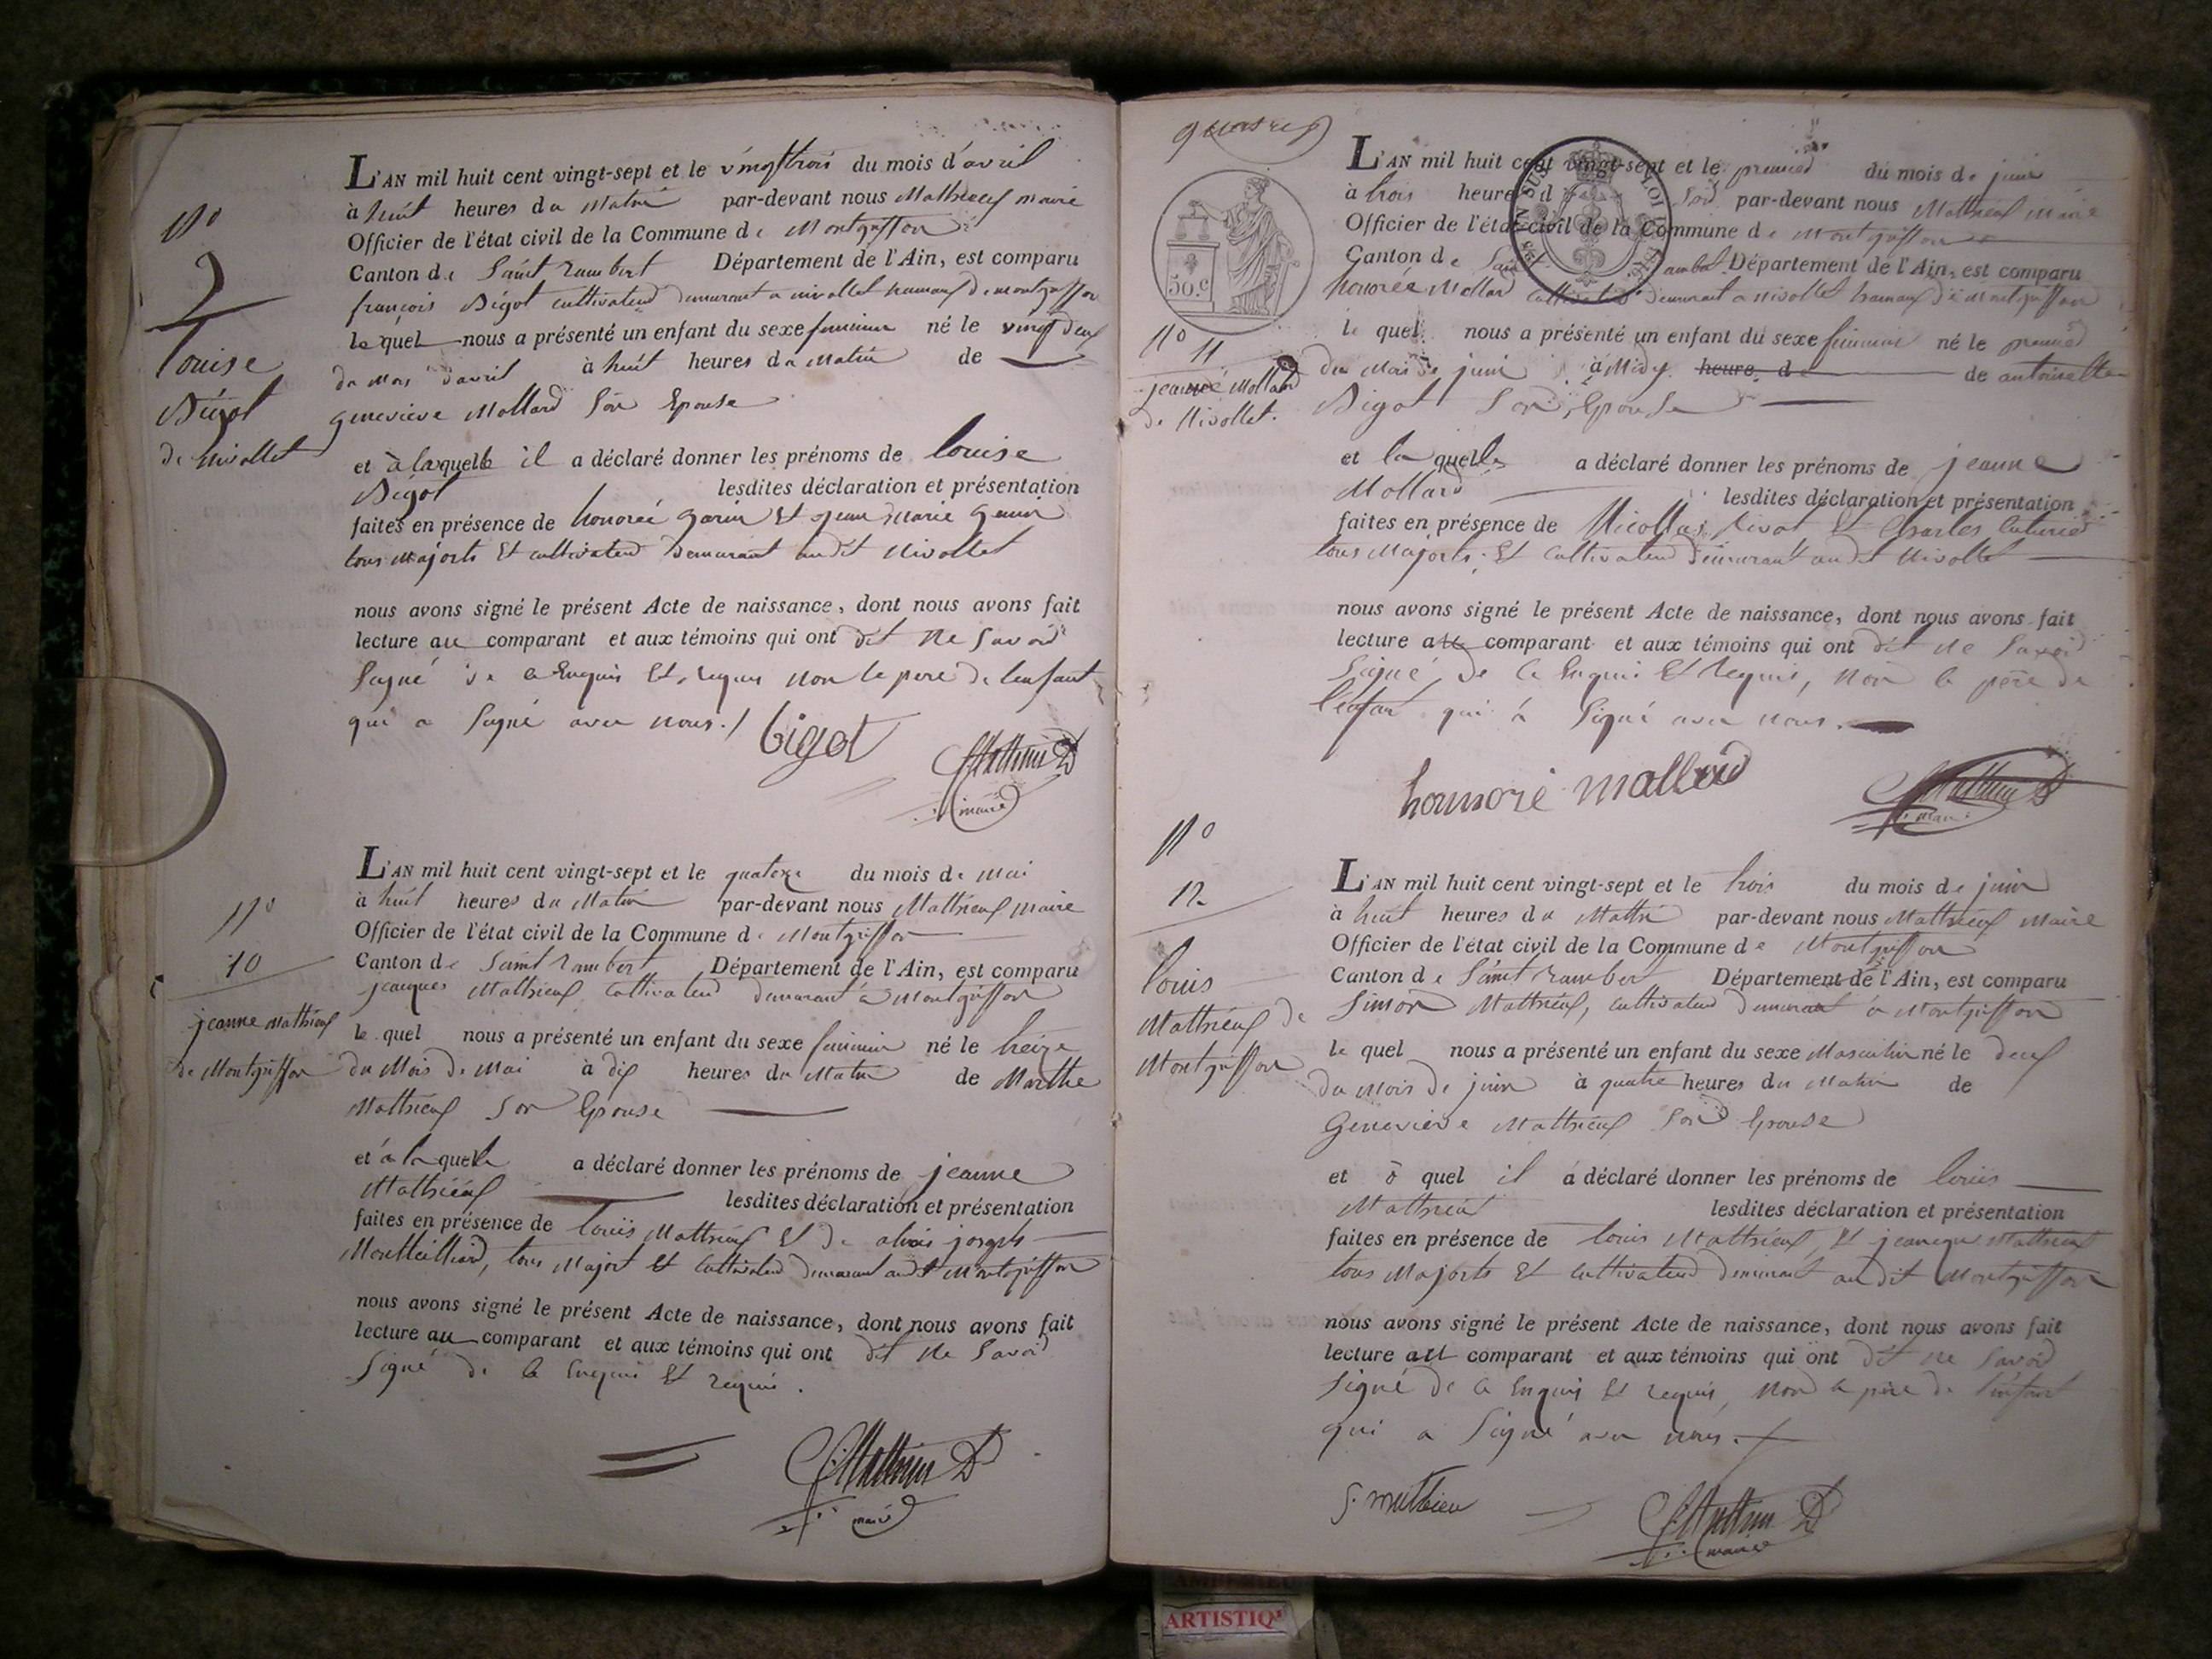 N°
9
Louise
Bigot
de Nivollet
L'AN mil huit cent vingt-sept et le vingt trois du mois d'avril
à huit heures du Matin par-devant nous Mathieux maire
Officier de l'état civil de la Commune de Montgriffon
Canton de Saint rambert Département de l'Ain, est comparu
françois Bigot cultivateur demurant a nivollet hameaux de montgriffon
le quel nous a présenté un enfant du sexe feminin né le vingt deux
du mois d'avril à huit heures du Matin de
genevieve Mollard Son Epouse
et à laquelle il a déclaré donner les prénoms de Louise
Bigot lesdites déclaration et présentation
faites en présence de honoreé garin Et jean Marie
tous majorts Et cultivateur demurant audit Nivollet
nous avons signé le présent Acte de naissance, dont nous avons fait
lecture au comparant et aux témoins qui ont dit ne Savoir
Signé de ce Enquis Et requis non le pere de lenfant
qui a Signé avec nous./
bigot
Mathieu
maire
N°
10
jeanne Mathieux
de Montgriffon
L'AN mil huit cent vingt-sept et le quatorze du mois de Mai
à huit heures du Matin par-devant nous Mathieux maire
Officier de l'état civil de la Commune de Montgriffon
Canton de Saint rambert Département de l'Ain, est comparu
jacques Mathieux cultivateur demurant a Montgriffon
le quel nous a présenté un enfant du sexe feminin né le treize
du Mois de Mai à dix heures du Matin de Marthe
Mathieux Son Epouse
et à laquelle a déclaré donner les prénoms de jeanne
Mathieux lesdites déclaration et présentation
faites en présence de Louis Mathieux Et de joseph
tous Majort Et Cultivateur demurant audit Montgriffon
nous avons signé le présent Acte de naissance, dont nous avons fait
lecture au comparant et aux témoins qui ont dit ne Savoir
Signé de ce Enquis Et requis.
Mathieu
maire
N° 11
jeanne Mollard
de Nivollet.
50.C
L'AN mil huit cent vingt-sept et le premier du mois de juin
à trois heures du Soir par-devant nous Mathieux Maire
Officier de l'état civil de la Commune de Montgriffon
Canton de Saint rambert Département de l'Ain, est comparu
honoreé Mollard cultivateur demurant a Nivollet hameaux de Montgriffon
le quel nous a présenté un enfant du sexe feminin né le premier
du Mois de juin à Midy heure de de antoinette
Bigot Son Epouse
et la quelle a déclaré donner les prénoms de jeanne
Mollard lesdites déclaration et présentation
faites en présence de Nicollas Et Charles
tous Majorts Et Cultivateur demurant audit Nivollet
nous avons signé le présent Acte de naissance, dont nous avons fait
lecture au comparant et aux témoins qui ont dit ne Savoir
Signé de ce Enquis Et requis, non le père de
l'enfant qui à Signé avec nous.
honnoré mollard
Mathieu
maire
N°
12
Louis
Mathieux de
Montgriffon
L'AN mil huit cent vingt-sept et le trois du mois de juin
à huit heures du Mattin par-devant nous Mathieux Maire
Officier de l'état civil de la Commune de Montgriffon
Canton de Saint rambert Département de l'Ain, est comparu
Simon Mathieux, cultivateur demurant à Montgriffon
le quel nous a présenté un enfant du sexe Masculin né le deux
du Mois de juin à quatre heures du Matin de
Genevieve Mathieux Son Epouse
et à quel il a déclaré donner les prénoms de Louis
Mathieux lesdites déclaration et présentation
faites en présence de Louis Mathieux, Et Mathieux
tous Majorts Et Cultivateur demurant audit Montgriffon
nous avons signé le présent Acte de naissance, dont nous avons fait
lecture au comparant et aux témoins qui ont dit ne Savoir
Signé de ce Enquis Et requis, Non le père de l'enfant
qui a Signé avec nous.
S. mathieu
Mathieu
maire
ARTISTIQ